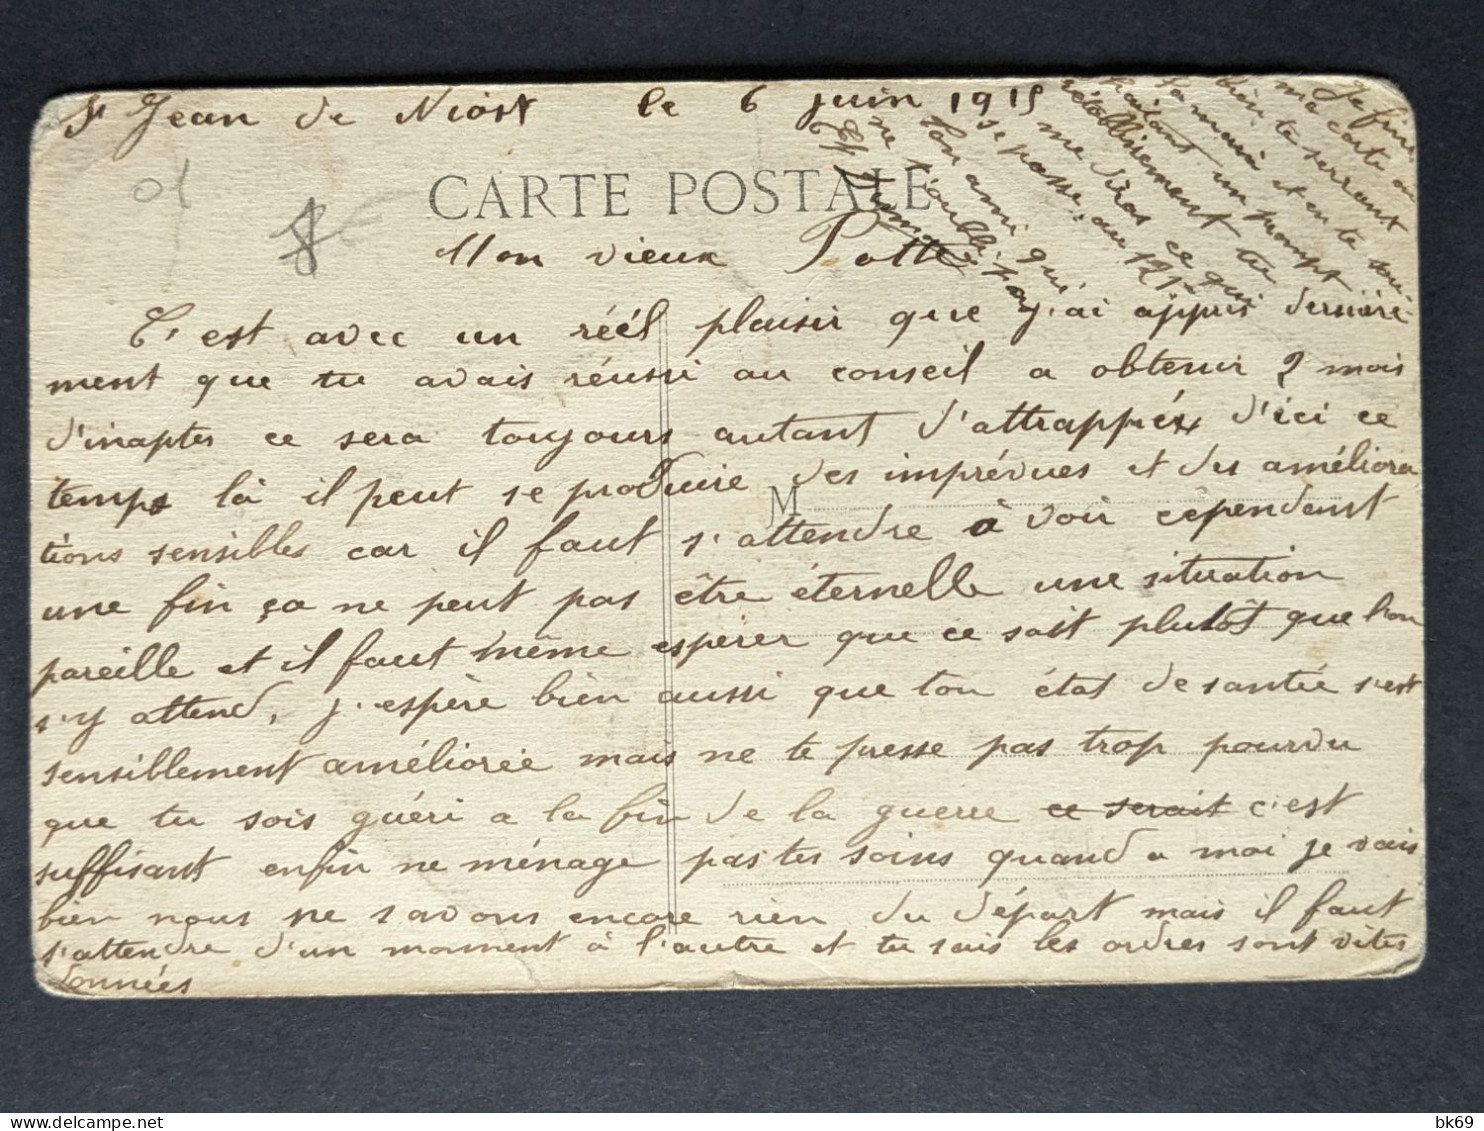 St Jean de Niost le 6 juin 1915
CARTE POSTALE
Mon vieux Potte
C'est avec un réél plaisir que j'ai appris dernière
ment que tu avais réussi au conseil a obtenir 2 mois
d'inaptes ce sera toujours autant d'attrappéx d'ici ce
temps là il peut se produire des imprévues et des améliora
tions sensibles car il faut s'attendre à voir cependant
M
une fin ça ne peut pas être éternelle une situation
pareille et il faut même espérer que ce soit plutôt que l'on
s'y attend, j'espère bien aussi que ton état de santée s'est
sensiblement améliorée mais ne te presse pas trop pourvu
que tu sois guéri a la fin de la guerre ce serait c'est
suffisant enfin ne ménage pas tes soins quand a moi je vais
bien nous ne savons encore rien du départ mais il faut
s'attendre d'un moment à l'autre et tu sais les ordres sont vites
données
Je finis
ma carte en
bien te serrant
la main et en te sou-
haitant un prompt
rétablissement tu
me diras ce qui
se passe au 121e
Ton ami qui
ne t'oublie pas
bk69